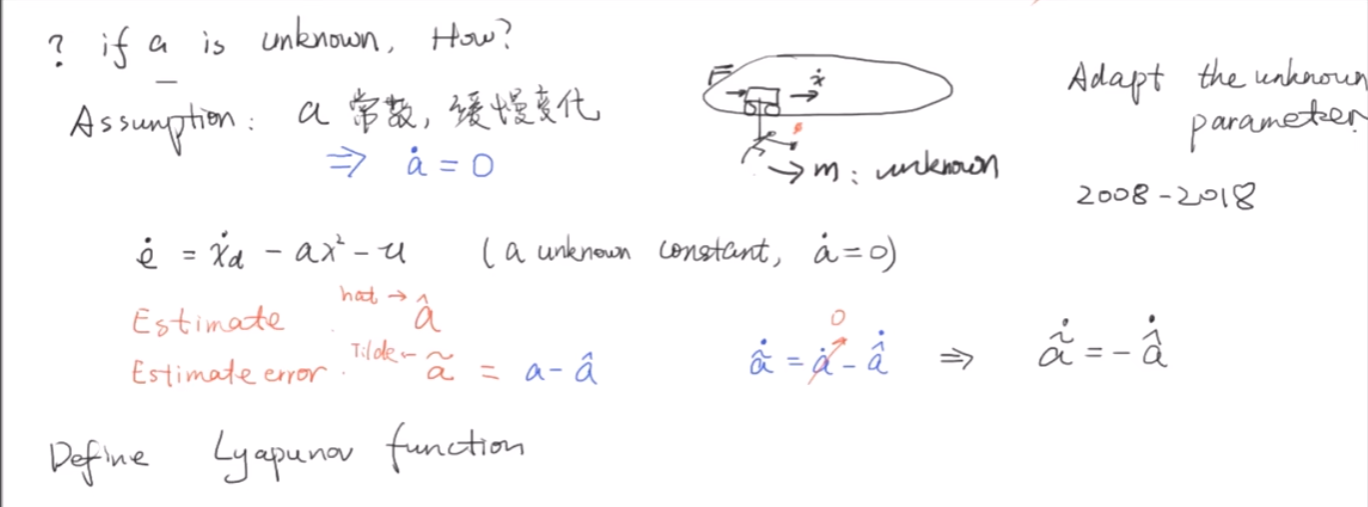 ? if a is unknown, How?
Assumption: a 常数, 缓慢变化
⇒ ȧ = 0
F
ẋ
→ m: unknown
Adapt the unknown
parameter
2008-2018
ė = ẋd - ax² - u (a unknown constant, ȧ=0)
Estimate hat → â
Estimate error. Tilde ← ã = a - â
ã̇ = ȧ - â̇ ⇒ ã̇ = - â̇
0
Define Lyapunov function